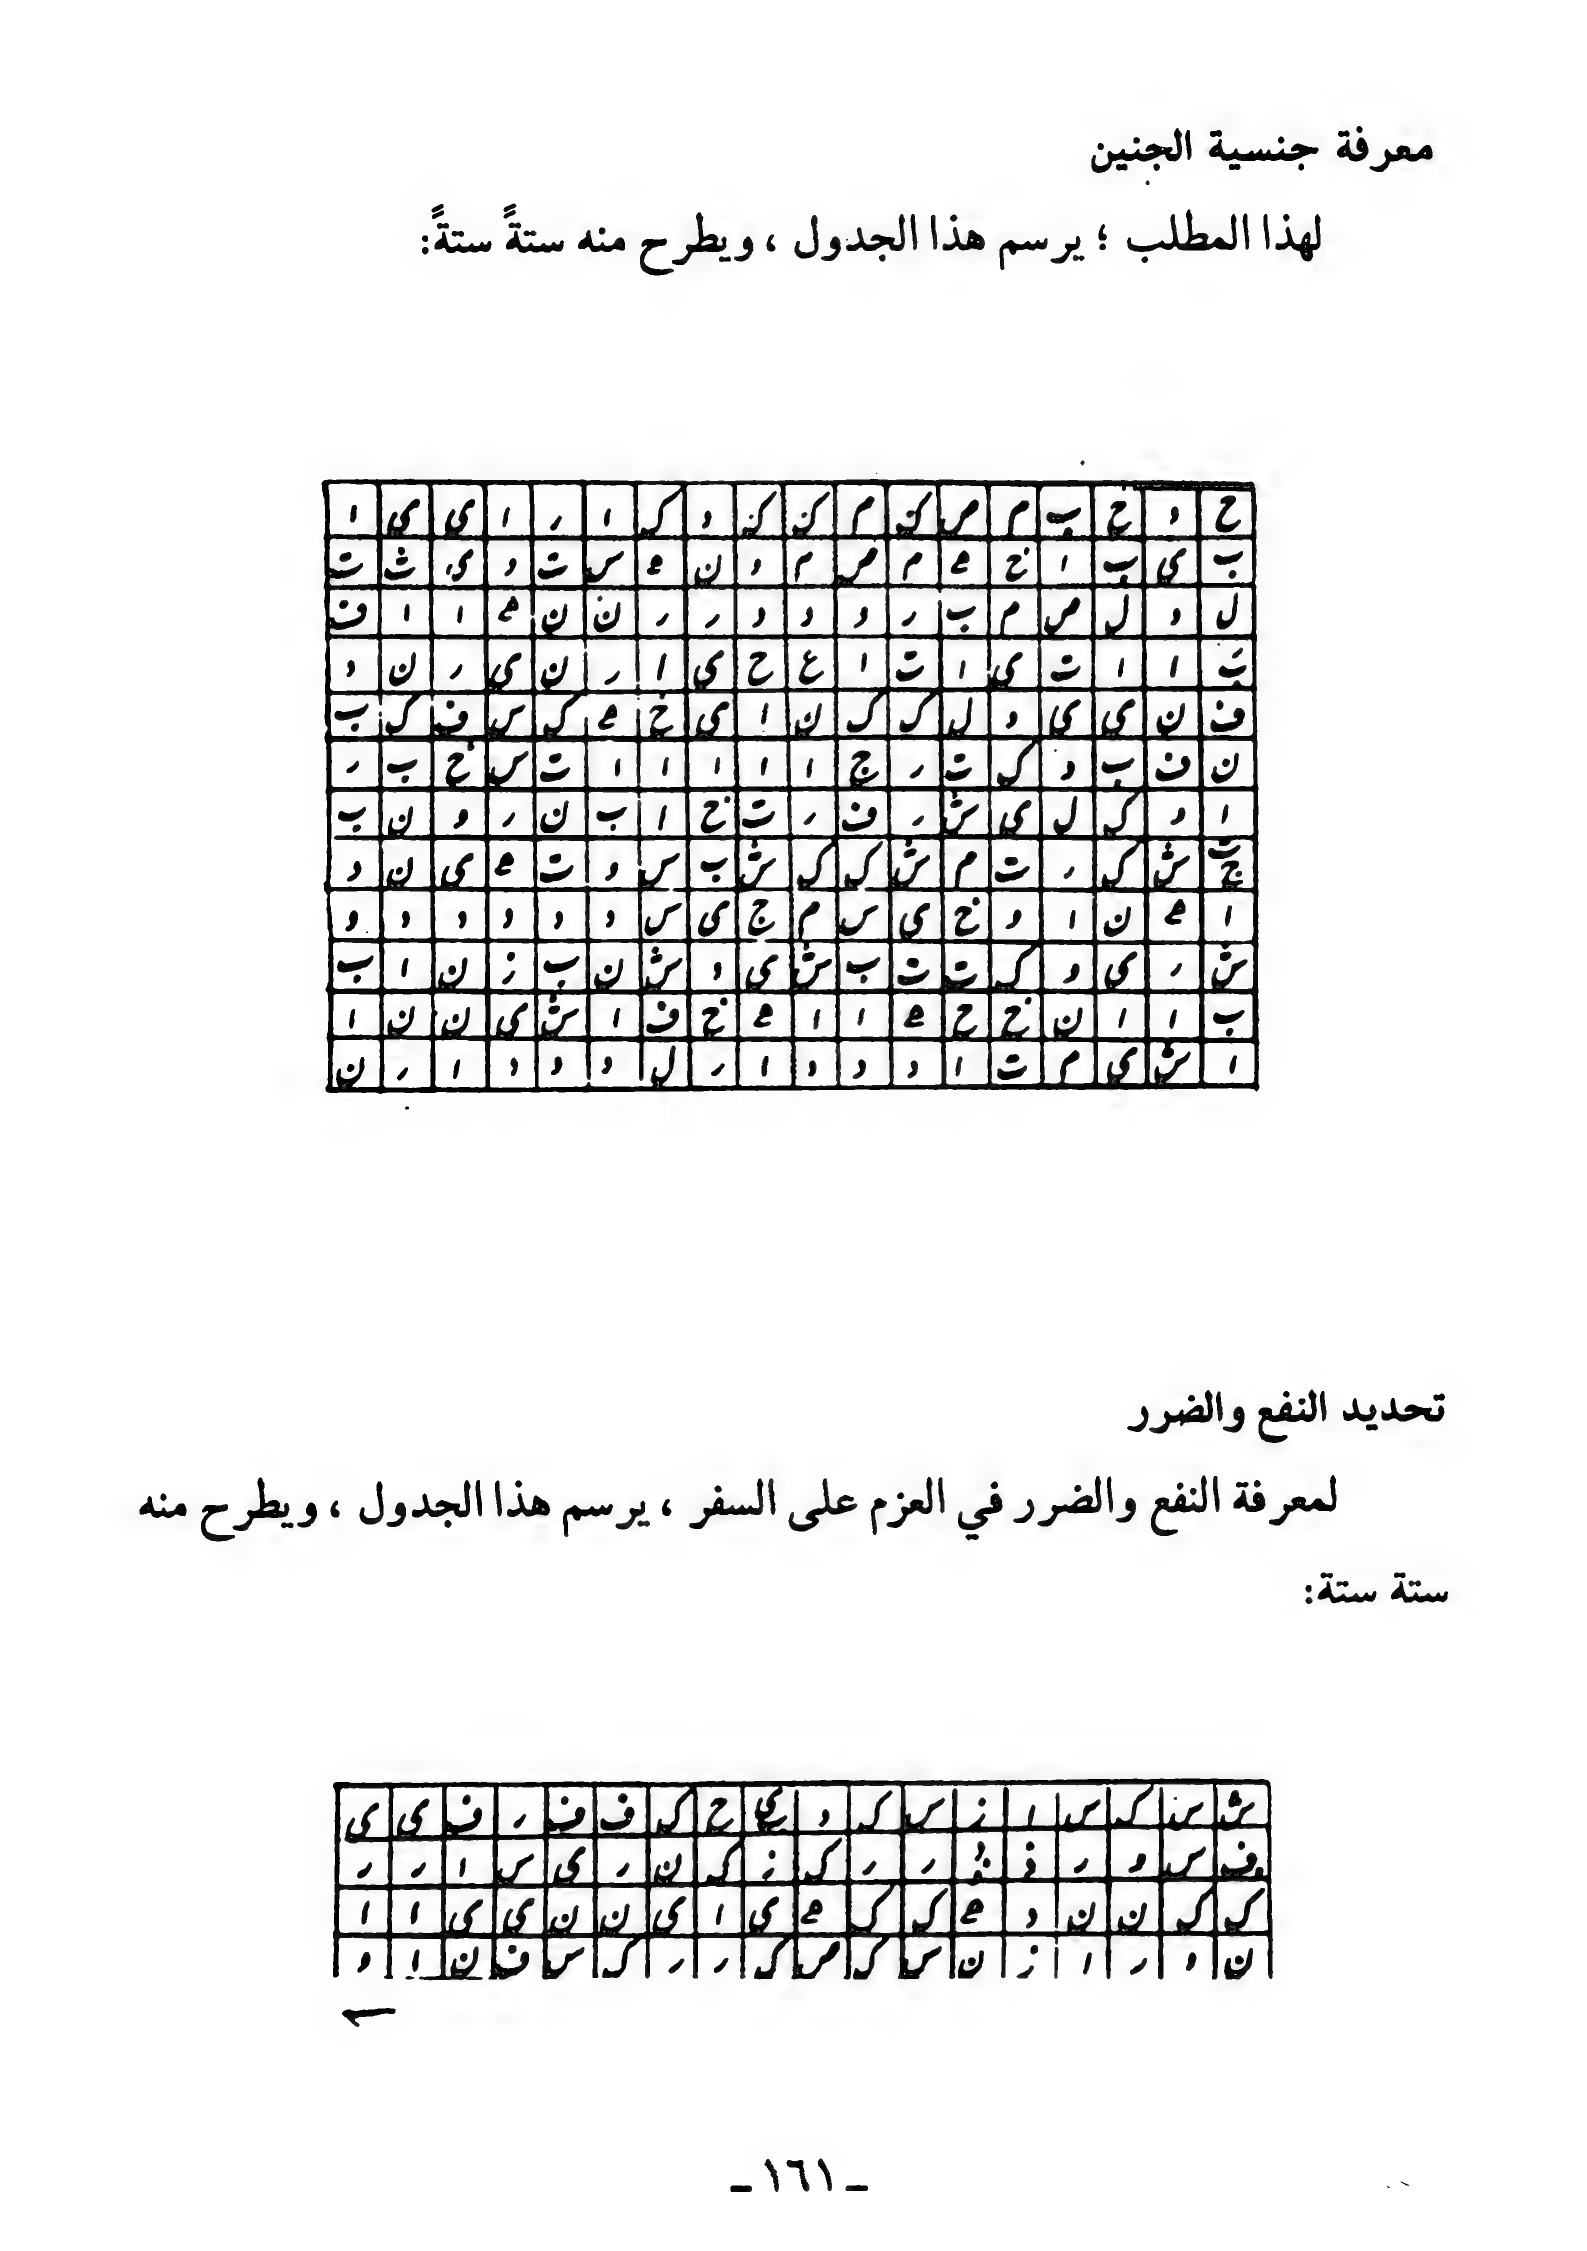 معرفة جنسية الجنين
لهذا المطلب ؛ يرسم هذا الجدول ، ويطرح منه ستةً ستةً:
ح د ح ب م ص ك م ك ك د ك ا ر ا ي ي ا
ب ي ب ا خ ه م ص م د ن ه س ت د ي ث ت
ل د ل ص م ب ر د د د ر ر ن ن ه ا ا ف
ب ا ا ت ي ا ت ا ع ح ي ا ر ن ي ر ن د
ف ن ي ي د ل ك ك ن ا ي خ ه ك س ف ك ب
ن ف ب د ك ت ر ج ا ا ا ا ا ت س خ ب ر
ا د ك ل ي ش ر ف ر ت خ ا ب ن ر و ن ب
ش ك ر ت م ش ك ك ش ب س و ت ه ي ن د
ا ه ن ا د خ ي س م ج ي س د د د د د و
ش ر ي و ك ت ت ب ش ي د ش ن ب ز ن ا ب
ب ا ا ن خ ح ه ا ا ه خ ف ا ش ي ن ن ا
ا ش ي م ت ا د د د ا ر ل د د د ا ر ن
تحديد النفع والضرر
لمعرفة النفع والضرر في العزم على السفر ، يرسم هذا الجدول ، ويطرح منه
ستة ستة:
ش س ك س ا ز س ك د ح ك ف ف ر ف ي ي
ف س و ر ر ر ك ز ك ن ر ي س ا ر ر
ك ك ن ن د ه ك ك ه ي ا ي ن ن ي ي ا ا
ن د ر ا ز ن س ك ص ك ر ر ك س ف ن ا د
ـ ١٦١ ـ